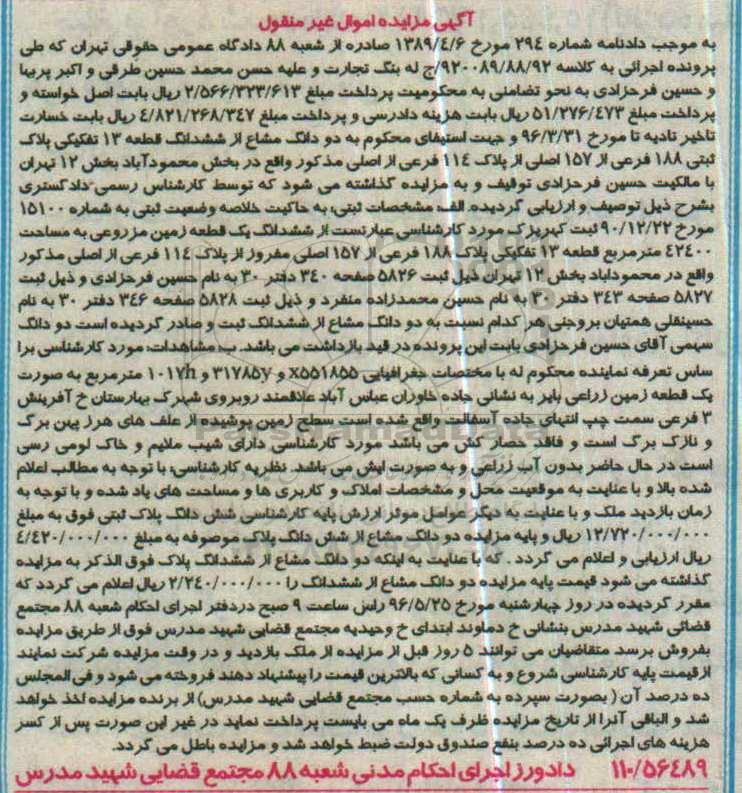 آگهی مزایده اموال غیر منقول
به موجب دادنامه شماره ۲۹۴ مورخ ۱۳۸۹/۴/۶ صادره از شعبه ۸۸ دادگاه عمومی حقوقی تهران که طی
پرونده اجرائی به کلاسه ۹۲۰۰۸۹/۸۸/۹۲/ج له بنگ تجارت و علیه حسن محمد حسین طرقی و اکبر پربها
و حسین فرحزادی به نحو تضامنی به محکومیت پرداخت مبلغ ۲/۵۶۶/۳۲۳/۶۱۳ ریال بابت اصل خواسته و
پرداخت مبلغ ۵۱/۲۷۶/۴۷۳ ریال بابت هزینه دادرسی و پرداخت مبلغ ۴/۸۲۱/۲۶۸/۳۴۷ ریال بابت خسارت
تاخیر تادیه تا مورخ ۹۶/۳/۳۱ و جهت استیفای محکوم به دو دانگ مشاع از ششدانگ قطعه ۱۳ تفکیکی پلاک
ثبتی ۱۸۸ فرعی از ۱۵۷ اصلی از پلاک ۱۱۴ فرعی از اصلی مذکور واقع در بخش محمودآباد بخش ۱۲ تهران
با مالکیت حسین فرحزادی توقیف و به مزایده گذاشته می شود که توسط کارشناس رسمی دادگستری
بشرح ذیل توصیف و ارزیابی گردیده. الف: مشخصات ثبتی: به حاکیت خلاصه وضعیت ثبتی به شماره ۱۵۱۰۰
مورخ ۹۰/۱۲/۲۲ ثبت کهریزک مورد کارشناسی عبارتست از ششدانگ یک قطعه زمین مزروعی به مساحت
۴۲۴۰۰ مترمربع قطعه ۱۳ تفکیکی پلاک ۱۸۸ فرعی از ۱۵۷ اصلی مفروز از پلاک ۱۱۴ فرعی از اصلی مذکور
واقع در محموداباد بخش ۱۲ تهران ذیل ثبت ۵۸۲۶ صفحه ۳۴۰ دفتر ۳۰ به نام حسین فرحزادی و ذیل ثبت
۵۸۲۷ صفحه ۳۴۳ دفتر ۳۰ به نام حسین محمدزاده منفرد و ذیل ثبت ۵۸۲۸ صفحه ۳۴۶ دفتر ۳۰ به نام
حسینقلی همتیان بروجنی هر کدام نسبت به دو دانگ مشاع از ششدانگ ثبت و صادر گردیده است دو دانگ
سهمی آقای حسین فرحزادی بابت این پرونده در قید بازداشت می باشد. ب: مشاهدات: مورد کارشناسی برا
ساس تعرفه نماینده محکوم له با مختصات جغرافیایی x۵۵۱۸۵۵ و ۳۱۷۸۵y و ۱۰۱۷h مترمربع به صورت
یک قطعه زمین زراعی بایر به نشانی جاده خاوران عباس آباد علاقمند روبروی شهرک بهارستان خ آفرینش
۳ فرعی سمت چپ انتهای جاده آسفالت واقع شده است سطح زمین پوشیده از علف های هرز پهن برگ
و نازک برگ است و فاقد حصار کش می باشد مورد کارشناسی دارای شیب ملایم و خاک لومی رسی
است در حال حاضر بدون آب زراعی و به صورت آیش می باشد. نظریه کارشناسی: با توجه به مطالب اعلام
شده بالا و با عنایت به موقعیت محل و مشخصات املاک و کاربری ها و مساحت های یاد شده و با توجه به
زمان بازدید ملک و با عنایت به دیگر عوامل موثر ارزش پایه کارشناسی شش دانگ پلاک ثبتی فوق به مبلغ
۱۲/۷۲۰/۰۰۰/۰۰۰ ریال و پایه مزایده دو دانگ مشاع از شش دانگ پلاک موصوفه به مبلغ ۴/۴۲۰/۰۰۰/۰۰۰
ریال ارزیابی و اعلام می گردد. که با عنایت به اینکه دو دانگ مشاع از ششدانگ پلاک فوق الذکر به مزایده
گذاشته می شود قیمت پایه مزایده دو دانگ مشاع از ششدانگ را ۲/۲۴۰/۰۰۰/۰۰۰ ریال اعلام می گردد که
مقرر گردیده در روز چهارشنبه مورخ ۹۶/۵/۲۵ راس ساعت ۹ صبح دردفتر اجرای احکام شعبه ۸۸ مجتمع
قضائی شهید مدرس بنشانی خ دماوند ابتدای خ وحیدیه مجتمع قضایی شهید مدرس فوق از طریق مزایده
بفروش برسد متقاضیان می توانند ۵ روز قبل از مزایده از ملک بازدید و در وقت مزایده شرکت نمایند
ازقیمت پایه کارشناسی شروع و به کسانی که بالاترین قیمت را پیشنهاد دهند فروخته می شود و فی المجلس
ده درصد آن (بصورت سپرده به شماره حسب مجتمع قضایی شهید مدرس) از برنده مزایده اخذ خواهد
شد و الباقی آنرا از تاریخ مزایده ظرف یک ماه می بایست پرداخت نماید در غیر این صورت پس از کسر
هزینه های اجرائی ده درصد بنفع صندوق دولت ضبط خواهد شد و مزایده باطل می گردد.
۱۱۰/۵۶۴۸۹ دادورز اجرای احکام مدنی شعبه ۸۸ مجتمع قضایی شهید مدرس